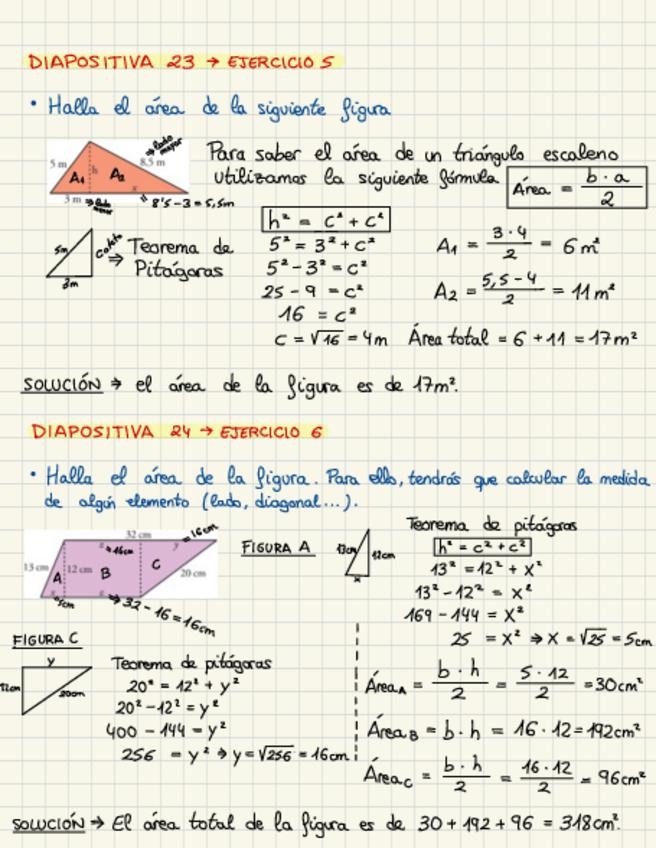 DIAPOSITIVA 23 → EJERCICIO 5
• Halla el área de la siguiente figura
5 m A1 h A2 8,5 m → lado mayor
3 m → lado menor x
" 8'5-3 = 5,5m
Para saber el área de un triángulo escaleno
utilizamos la siguiente fórmula Área = b · a / 2
5m cateto 3m
⇒ Teorema de
Pitágoras
h² = c² + c²
5² = 3² + c²
5² - 3² = c²
25 - 9 = c²
16 = c²
c = √16 = 4m
A1 = 3 · 4 / 2 = 6 m²
A2 = 5,5 - 4 / 2 = 11 m²
Área total = 6 + 11 = 17m²
SOLUCIÓN → el área de la figura es de 17m².
DIAPOSITIVA 24 → EJERCICIO 6
• Halla el área de la figura. Para ello, tendrás que calcular la medida
de algún elemento (lado, diagonal...).
32 cm
z = 16cm y = 16cm
13 cm A 12 cm B C 20 cm
x = 5cm z ⇒ 32 - 16 = 16cm
FIGURA A
13cm 12cm
x
Teorema de pitágoras
h² = c² + c²
13² = 12² + x²
13² - 12² = x²
169 - 144 = x²
25 = x² ⇒ x = √25 = 5cm
FIGURA C
y
12cm 20cm
Teorema de pitágoras
20² = 12² + y²
20² - 12² = y²
400 - 144 = y²
256 = y² → y = √256 = 16cm
Área A = b · h / 2 = 5 · 12 / 2 = 30cm²
Área B = b · h = 16 · 12 = 192cm²
Área C = b · h / 2 = 16 · 12 / 2 = 96cm²
SOLUCIÓN → El área total de la figura es de 30 + 192 + 96 = 318cm².